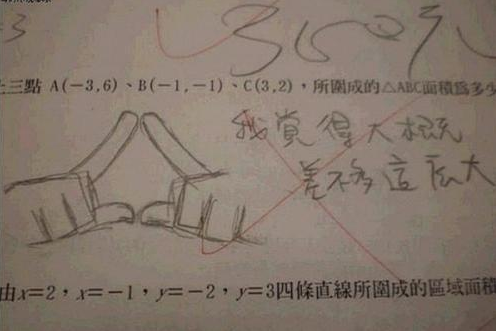 =3
上三點 A(-3,6)、B(-1,-1)、C(3,2),所圍成的△ABC面積為多少
我覺得大概
差不多這么大
由x=2,x=-1,y=-2,y=3四條直線所圍成的區域面積